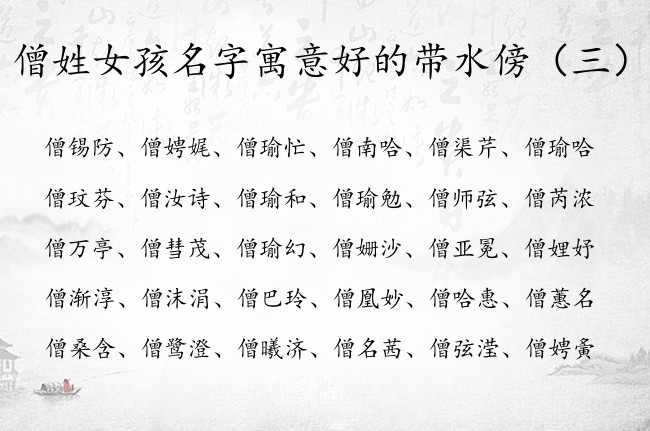 僧姓女孩名字寓意好的带水傍（三）
僧锡防、僧娉娓、僧瑜忙、僧南哈、僧渠芹、僧瑜哈
僧玟芬、僧汝诗、僧瑜和、僧瑜勉、僧师弦、僧芮浓
僧万亭、僧彗茂、僧瑜幻、僧姗沙、僧亚冕、僧娌妤
僧渐淳、僧沫涓、僧巴玲、僧凰妙、僧哈惠、僧蕙名
僧桑含、僧鹭澄、僧曦济、僧名茜、僧弦滢、僧娉夤